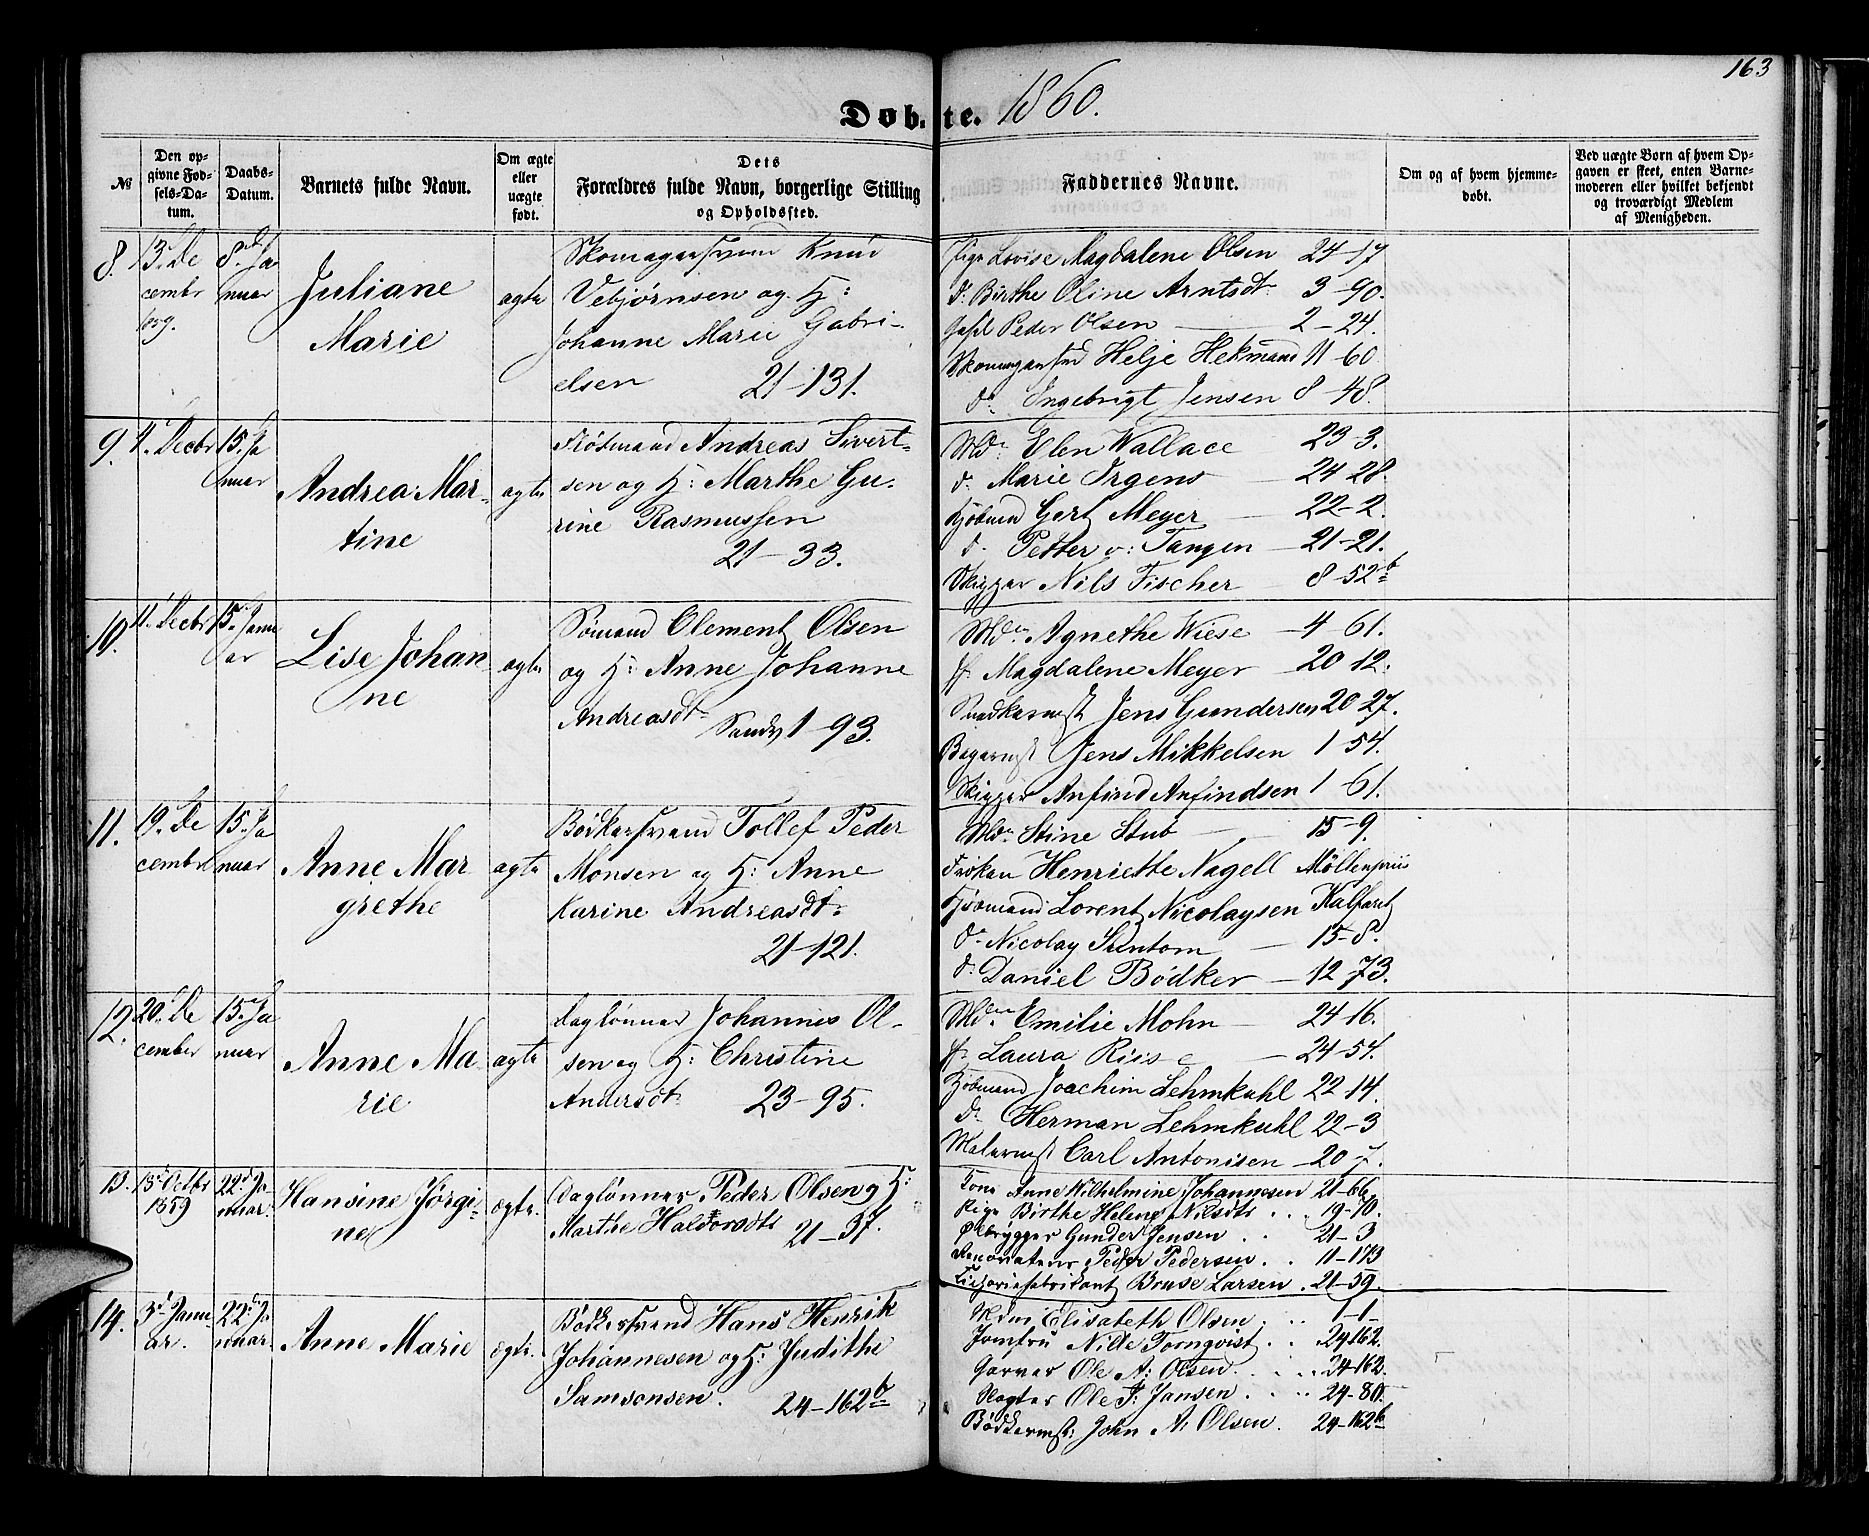 163
Døbte. 1860.
№
Den opgivne Fødsels-Datum.
Daabs-Datum.
Barnets fulde Navn.
Om ægte eller uægte født.
Dets Forældres fulde Navn, borgerlige Stilling og Opholdssted.
Faddernes Navne.
Om og af hvem hjemmedøbt.
Ved uægte Børn af hvem Opgaven er skeet, enten Barnemoderen eller hvilket bekjendt og troværdigt Medlem af Menigheden.
8.
13. De
cembr
1859.
8d. Ja
nuar
Juliane
Marie
ægte
Skomagersvend Knud
Vebjørnsen og H:
Johanne Marie Gabri-
elsen 21-131.
Pige Lovise Magdalene Olsen 24-17
do Birthe Oline Arntsdt. 3-90.
Peder Olsen 2-24.
Skomagersvd Helje Hekmand 11-60
do Ingebrigt Jensen 8-48.
9.
4. Decbr
15. Ja
nuar
Andrea Mar-
tine
ægte
Flødmand Andreas Sivert-
sen og H: Marthe Gu-
rine Rasmussen
21-33.
Mdm. Elen Wallace 23-3.
do Marie Irgens 24-28.
Kjøbmd Gert Meyer 22-2.
do Petter v: Tangen 21-21.
Skipper Nils Fischer 8-52b
10.
11. Decbr
15. Janu
ar
Lise Johan
ne
ægte
Sømand Clement Olsen
og H: Anne Johanne
Andreasdt. Sandv 1-93.
Mdm. Agnethe Wiese 4-61.
Magdalene Meyer 20-12.
Jens Gundersen 20-27.
Bagermst Jens Mikkelsen 1-54.
Skipper Anfind Anfindsen 1-61.
11.
19. De
cembr
15. Ja
nuar
Anne Mar
grethe
ægte
Bødkersvend Tollef Peder
Monsen og H: Anne
Karine Andreasdt.
21-121.
Mdm. Stine Stub 15-9.
Frøken Henriette Nagell Møllenpriis
Kjøbmand Lorentz Nicolaysen Kalfaret
do Nicolay Suntom 15-8.
do Daniel Bødker 12-73.
12.
20. De
cember
15. Ja
nuar
Anne Ma-
rie
ægte
Daglønner Johannes Ol-
sen og H: Christine
Andersdt. 23-95.
Mdm. Emilie Mohn 24-16.
Laura Riise 24-54.
Kjøbmand Joachim Lehmkuhl 22-14.
do Herman Lehmkuhl 22-3
Malermst Carl Antonisen 20-7.
13.
13d Octbr
1859
22d. Ja
nuar.
Hansine Jørgi-
ne
ægte.
Daglønner Peder Olsen og H:
Marthe Haldorsdtr 21-37.
Kone Anne Wilhelmine Johannesen 21-66
Pige Birthe Helene Nilsdtr 19-70.
Ølbrygger Gunder Jensen 21-3
Peder Pedersen 11-173
Cichoriefabrikant Bonse Larsen 21-59.
14.
3d. Janu-
ar.
22d. Ja
nuar.
Anne Marie
ægte.
Bødkersvend Hans Henrik
Johannesen og H: Judithe
Samsonsen. 24-162b
Mdm: Elisabeth Olsen 1-1-
Jomfru Nille Tornqvist 24-162.
Garver Ole A: Olsen 24-162.
Slagter Ole J: Jansen 24-80.
Bødkermst: John A: Olsen. 24-162b